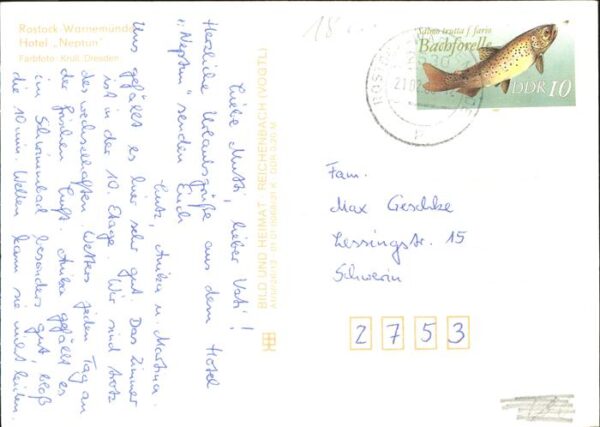 Rostock-Warnemünde
Hotel „Neptun"
Farbfoto: Krull, Dresden
Liebe Mutti, lieber Vati!
Herzliche Urlaubsgrüße aus dem Hotel
„Neptun" senden Euch
Lutz, Anika u. Martina.
Uns gefällt es hier sehr gut. Das Zimmer
ist in der 10. Etage. Wir sind trotz
des wechselhaften Wetters jeden Tag an
die frischen Luft. Anika gefällt es
im Schwimmbad besonders gut, bloß
die 10 min. Wellen kann sie nicht leiden.
BILD UND HEIMAT REICHENBACH (VOGTL)
18
Salmo trutta f. fario
Bachforelle
DDR 10
Fam.
Max Geschke
Lessingstr. 15
Schwerin
2 7 5 3